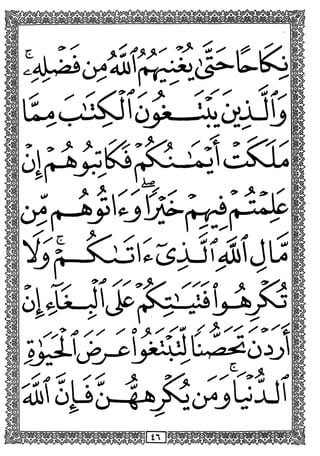 نِكَاحًا حَتَّىٰ يُغْنِيَهُمُ ٱللَّهُ مِن فَضْلِهِۦۗ
وَٱلَّذِينَ يَبْتَغُونَ ٱلْكِتَٰبَ مِمَّا
مَلَكَتْ أَيْمَٰنُكُمْ فَكَاتِبُوهُمْ إِنْ
عَلِمْتُمْ فِيهِمْ خَيْرًاۖ وَءَاتُوهُم مِّن
مَّالِ ٱللَّهِ ٱلَّذِىٓ ءَاتَىٰكُمْۚ وَلَا
تُكْرِهُوا۟ فَتَيَٰتِكُمْ عَلَى ٱلْبِغَآءِ إِنْ
أَرَدْنَ تَحَصُّنًا لِّتَبْتَغُوا۟ عَرَضَ ٱلْحَيَوٰةِ
ٱلدُّنْيَاۚ وَمَن يُكْرِههُّنَّ فَإِنَّ ٱللَّهَ
٤٦